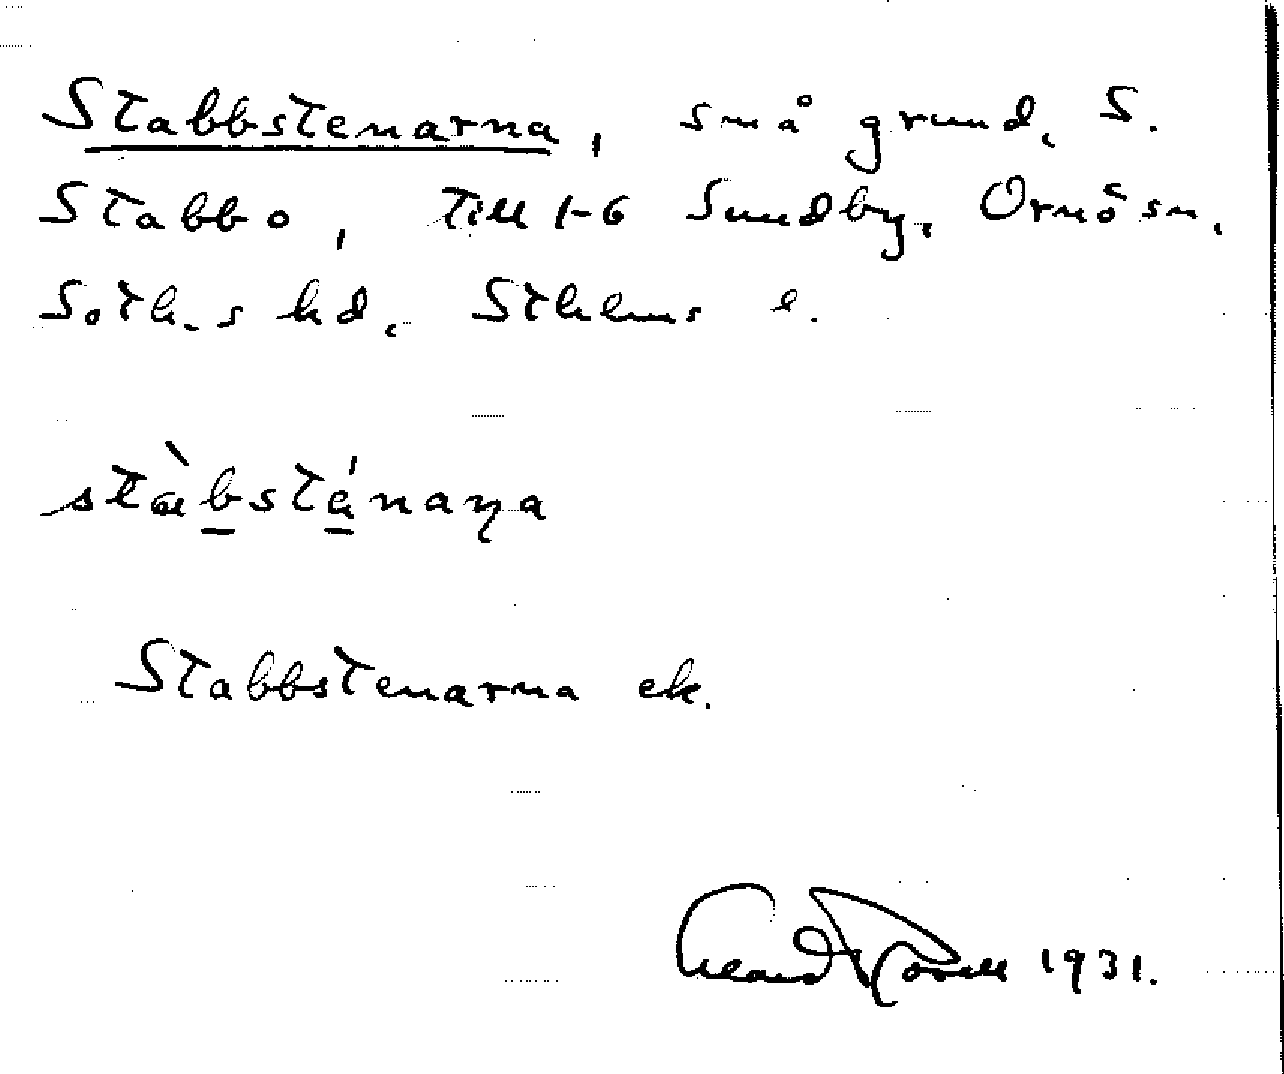 Stabbstenarna, små grund, S.
Stabbo, till 1-6 Sundby, Ornö sn,
Soth.s hd, Sthlms l.
stàbsténaṇa
Stabbstenarna ek.
1931.